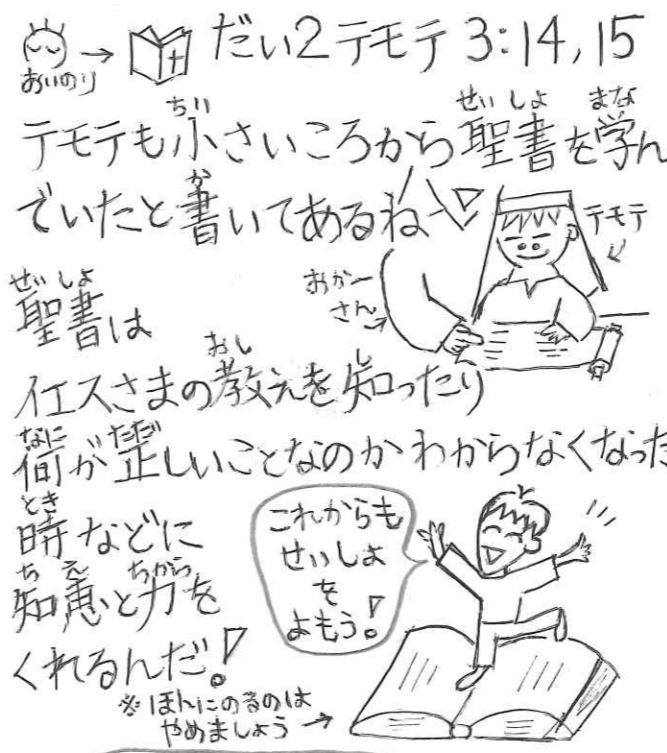 おいのり → だい2テモテ 3:14,15
テモテも小さいころから聖書を学ん
でいたと書いてあるね
テモテ
おかー
さん→
聖書は
イエスさまの教えを知ったり
何が正しいことなのかわからなくなった
時などに
知恵と力を
くれるんだ!
これからも
せいしょ
を
よもう!
※ほんにのるのは
やめましょう →